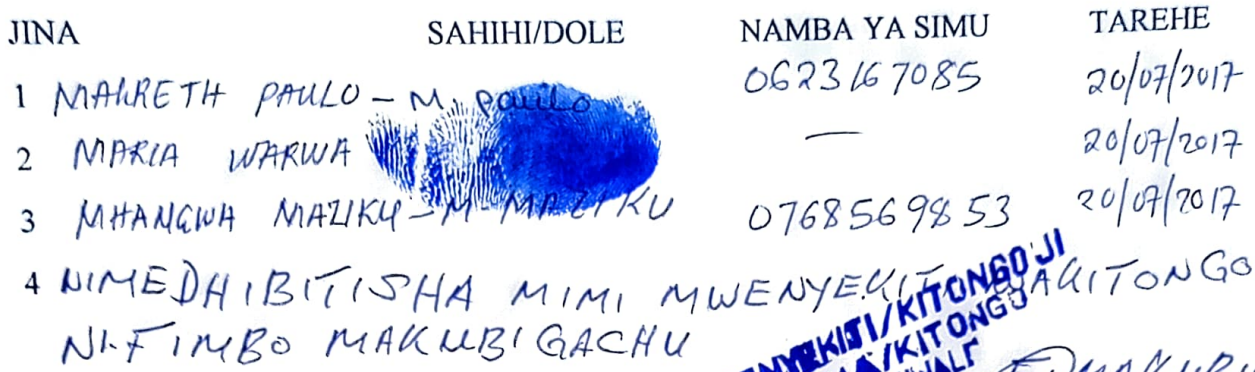 JINA SAHIHI/DOLE NAMBA YA SIMU TAREHE
1 MAKRETH PAULO - M. paulo 0623167085 20/07/2017
2 MARIA WARWA — 20/07/2017
3 MHANGWA MAZIKU - M-MAZIKU 0768569853 20/07/2017
4 NIMEDHIBITISHA MIMI MWENYEKITI WAKITONGO
NI-FIMBO MAKUBI GACHU
KITI/KITONGOJI
/KITONGO